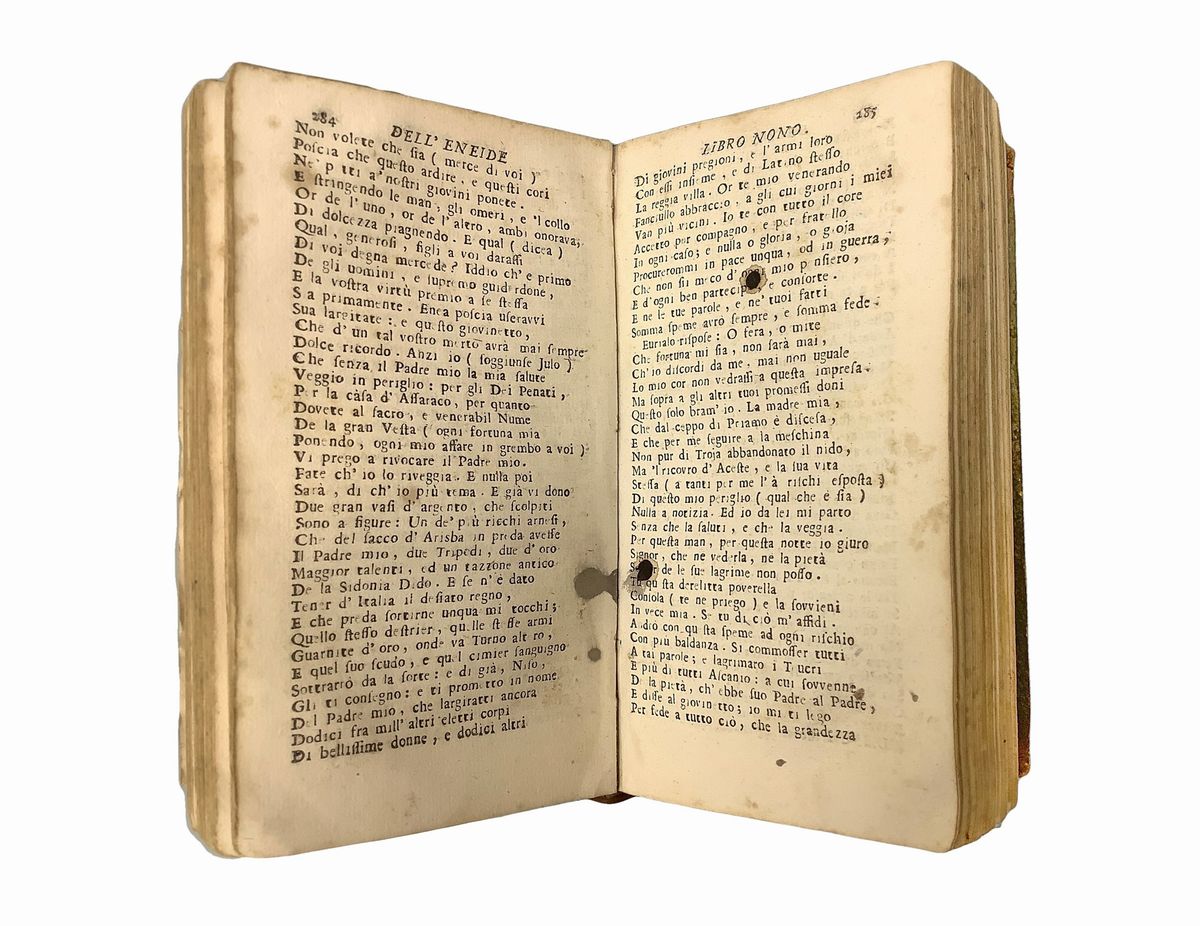 284
DELL' ENEIDE
Non volete che ſia ( merce di voi )
Poſcia che queſto ardire, e queſti cori
Ne' p tti a' noſtri giovini ponete.
E ſtringendo le man, gli omeri, e 'l collo
Or de l' uno, or de l' altro, ambi onorava;
Di dolcezza piagnendo. E qual ( dicea )
Qual, generoſi, figli a voi daraſſi
Di voi degna mercede? Iddio ch' è primo
De gli uomini, e ſupremo guiderdone,
E la voſtra virtù premio a ſe ſteſſa
S a primamente. Enea poſcia uſeravvi
Sua largitate: e qu ſto giovinetto,
Che d' un tal voſtro merto avrà mai ſempre
Dolce ricordo. Anzi io ( ſoggiunſe Julo )
Che ſenza il Padre mio la mia ſalute
Veggio in periglio: per gli Dei Penati,
Per la càſa d' Aſſaraco, per quanto
Dovete al ſacro, e venerabil Nume
De la gran Veſta ( ogni fortuna mia
Ponendo, ogni mio affare in grembo a voi )
Vi prego a rivocare il Padre mio.
Fate ch' io lo riveggia. E nulla poi
Sarà, di ch' io più tema. E già vi dono
Due gran vaſi d' argento, che ſcolpiti
Sono a figure: Un de' più ricchi arneſi,
Che del ſacco d' Arisba in preda aveſſe
Il Padre mio, due Tripedi, due d' oro
Maggior talenti, ed un tazzone antico
De la Sidonia Dido. E ſe n' è dato
Tener d' Italia il deſiato regno,
E che preda ſortirne unqua mi tocchi;
Quello ſteſſo deſtrier, quelle ſt ſſe armi
Guarnite d' oro, onde va Turno alt ro,
E quel ſuo ſcudo, e quel cimier ſanguigno
Sottrarrò da la ſorte: e di già, Niſo,
Gli ti conſegno: e ti prometto in nome
Del Padre mio, che largiratti ancora
Dodici fra mill' altri eletti corpi
Di belliſſime donne, e dodici altri
285
LIBRO NONO.
Di giovini pregioni, e l' armi loro
Con eſſi inſieme, e di Latino ſteſſo
La reggia villa. Or te mio venerando
Fanciullo abbraccio, a gli cui giorni i miei
Van più vicini. Io te con tutto il core
Accetto per compagno, e per fratello
In ogni caſo; e nulla o gloria, o gioja
Procurerommi in pace unqua, od in guerra,
Che non ſii meco d' mio p nſiero,
E d' ogni ben partecip e conſorte.
E ne le tue parole, e ne' tuoi fatti
Somma ſpeme avrò ſempre, e ſomma fede.
Eurialo riſpoſe: O fera, o mite
Che fortuna mi ſia, non ſarà mai,
Ch' io diſcordi da me, mai non uguale
Lo mio cor non vedraſſi a queſta impreſa.
Ma ſopra a gli altri tuoi promeſſi doni
Queſto ſolo bram' io. La madre mia,
Che dal ceppo di Priamo è diſceſa,
E che per me ſeguire a la meſchina
Non pur di Troja abbandonato il nido,
Ma 'l ricovro d' Aceſte, e la ſua vita
Steſſa ( a tanti per me l' à riſchi eſpoſta )
Di queſto mio periglio ( qual che e ſia )
Nulla a notizia. Ed io da lei mi parto
Senza che la ſaluti, e che la veggia.
Per queſta man, per queſta notte io giuro
Signor, che ne vederla, ne la pietà
de le ſue lagrime non poſſo.
Tu qu ſta derelitta poverella
Conſola ( te ne priego ) e la ſovvieni
In vece mia. Se tu di ciò m' affidi.
Andrò con qu ſta ſpeme ad ogni riſchio
Con più baldanza. Si commoſſer tutti
A tai parole; e lagrimaro i Teucri
E più di tutti Aſcanio: a cui ſovvenne
De la pietà, ch' ebbe ſuo Padre al Padre,
E diſſe al giovinetto; io mi ti lego
Per fede a tutto ciò, che la grandezza